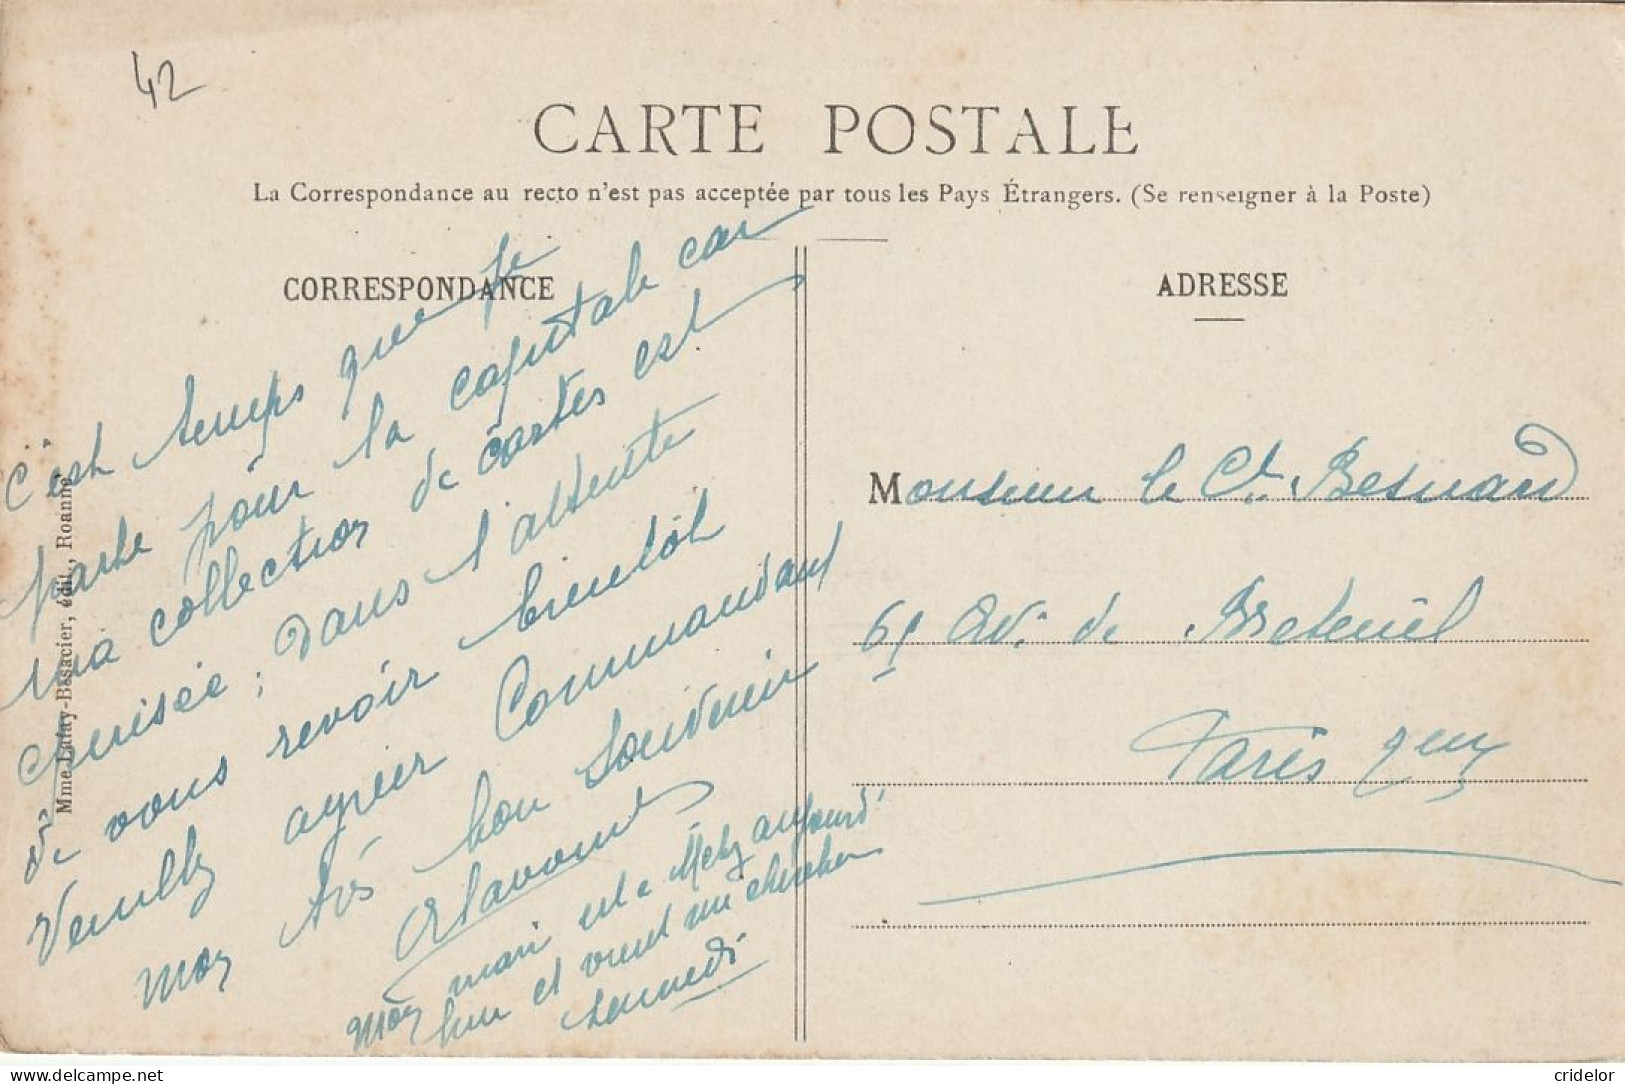 42
CARTE POSTALE
La Correspondance au recto n'est pas acceptée par tous les Pays Étrangers. (Se renseigner à la Poste)
CORRESPONDANCE
c'est temps que je
parte pour la capitale car
ma collection de cartes est
épuisée ; Dans l'attente
de vous revoir bientôt
Veuillez agréer Commandant
mon très bon souvenir
mon mari est à Metz aujourd'
hui et vient me chercher
samedi
Mme Lafay-Besacier, édit., Roanne
ADRESSE
Monsieur le Ct. Besnard
61 Av. de Breteuil
Paris
delcampe.net
cridelor